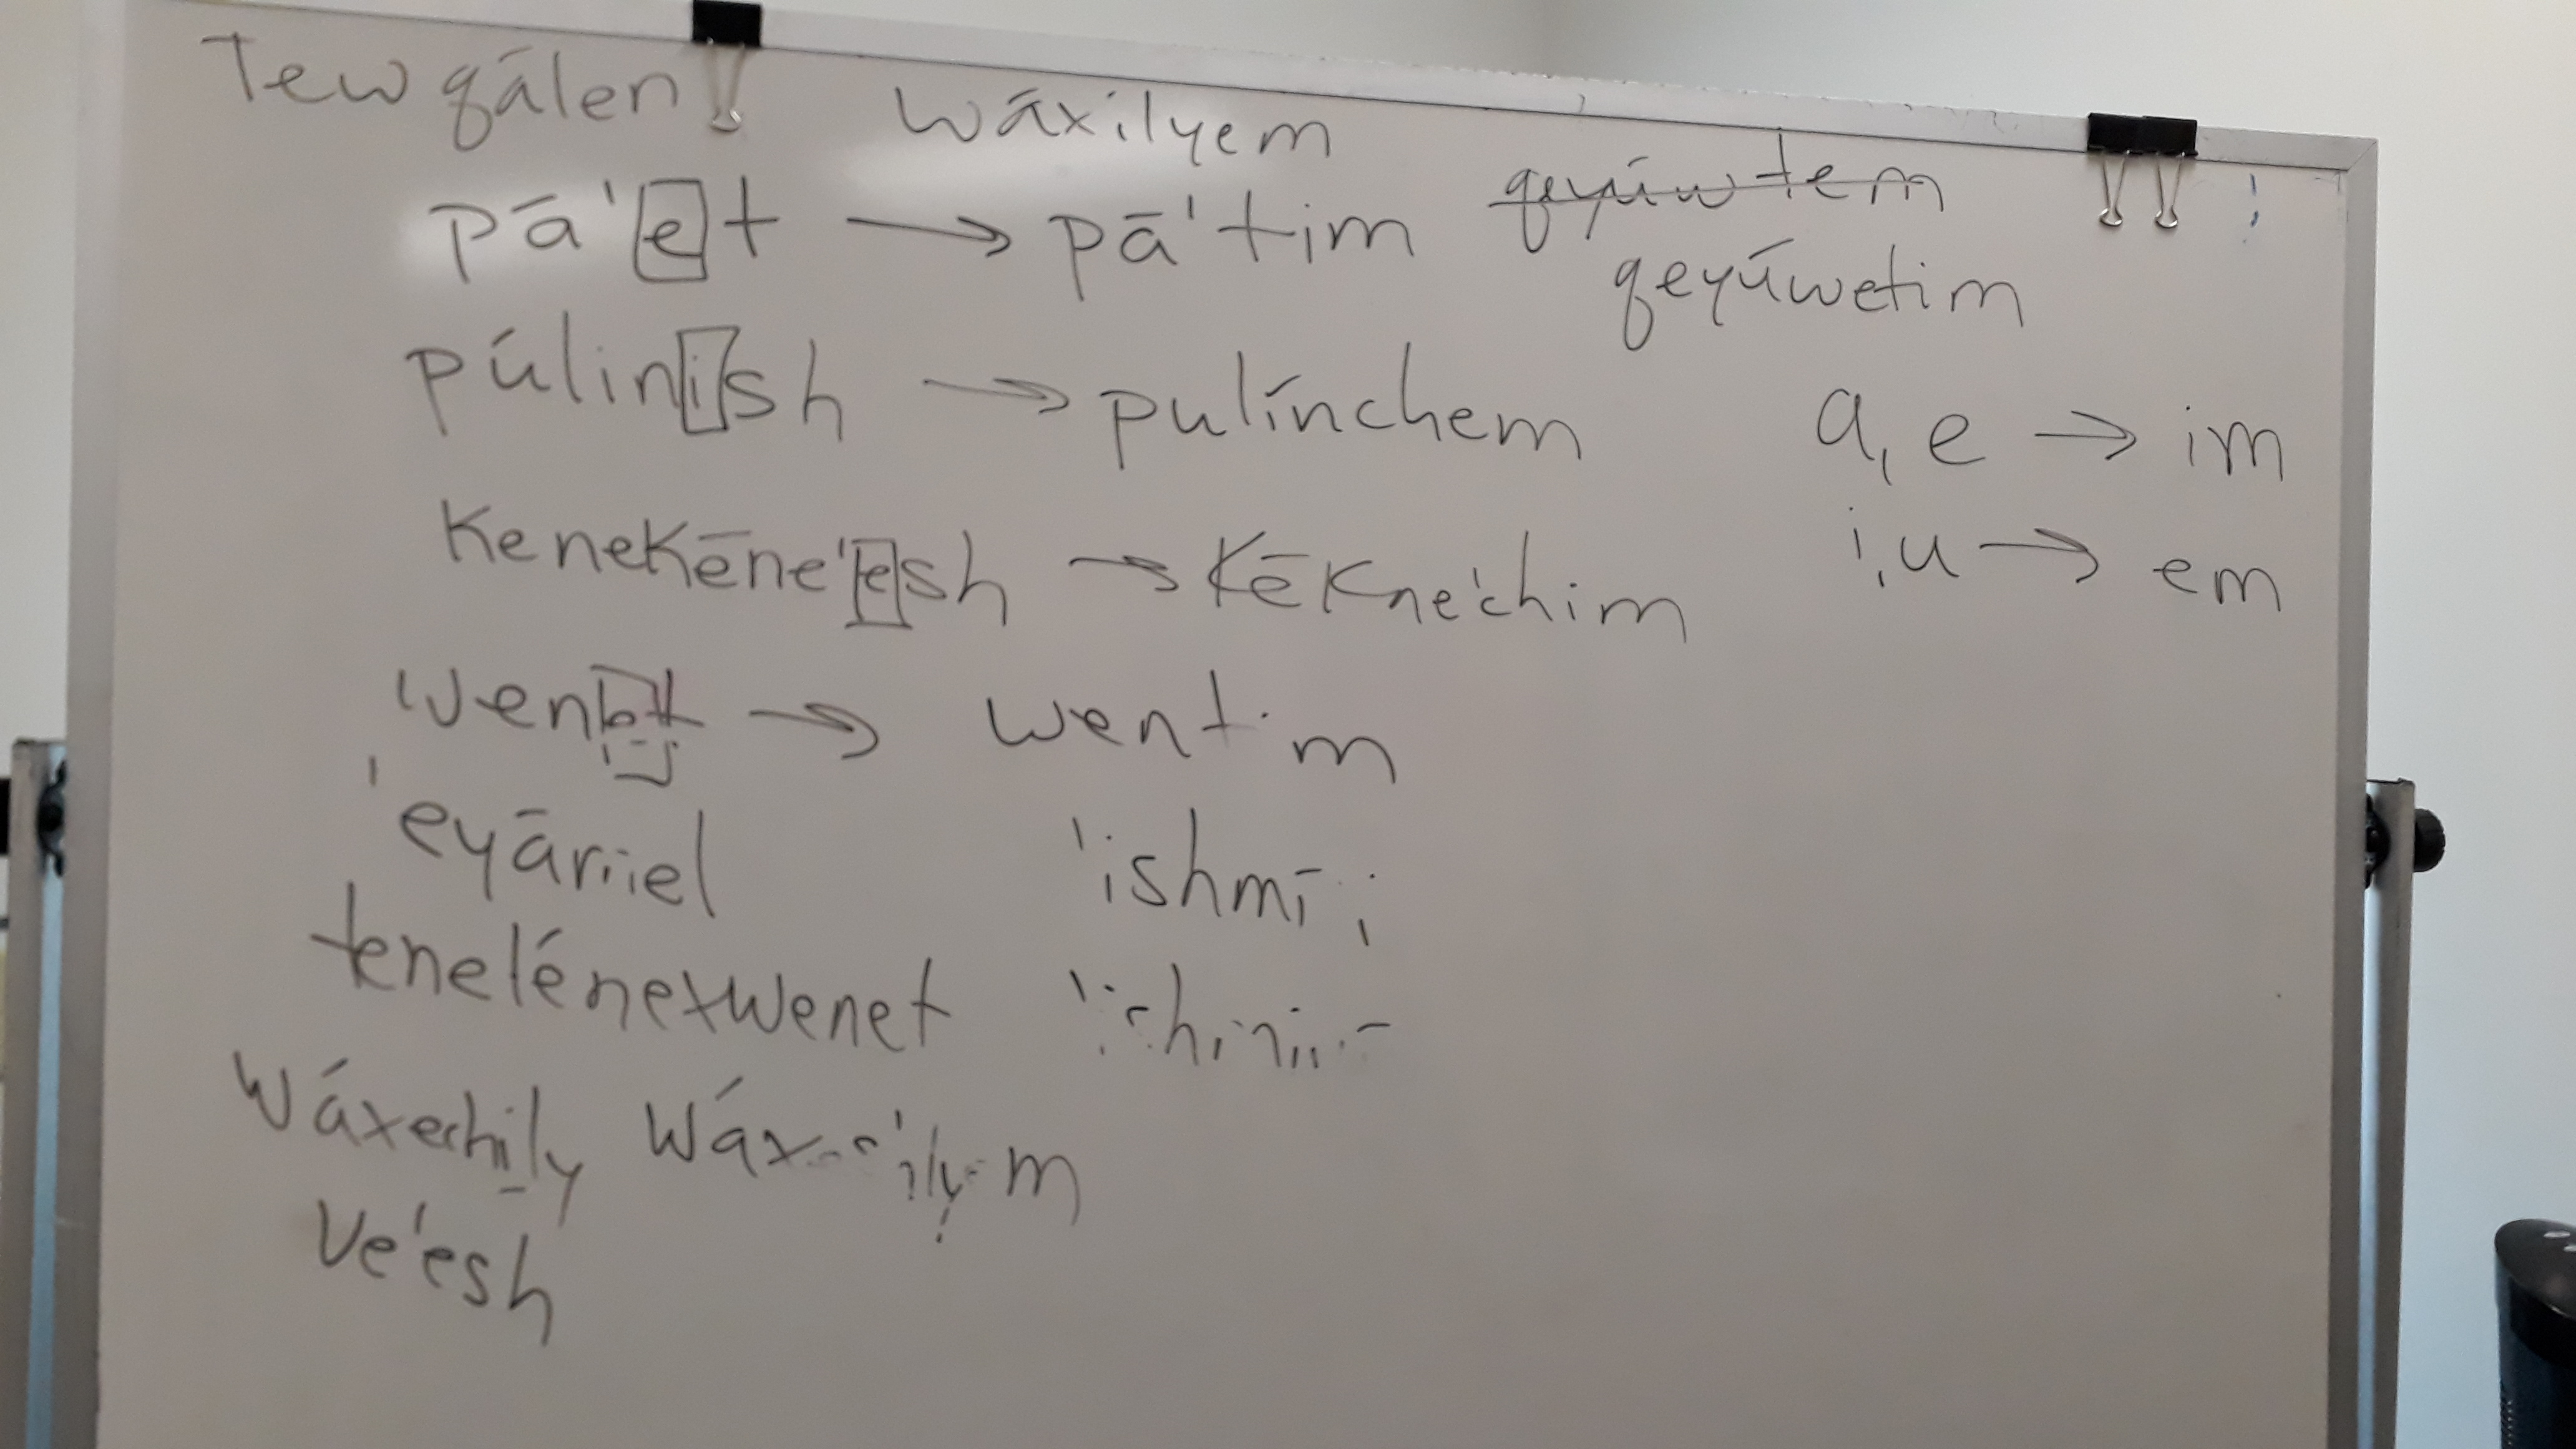 Tewqálen wáxilyem
pā'et → pā'tim qeyúwtem
qeyúwetim
púlinish → pulínchem
a, e → im
kenekēne'esh → kēkne'chim
i, u → em
wenet → went m
'eyāriiel 'ishmī
tenelénexwenet
wáxechily
ve'esh